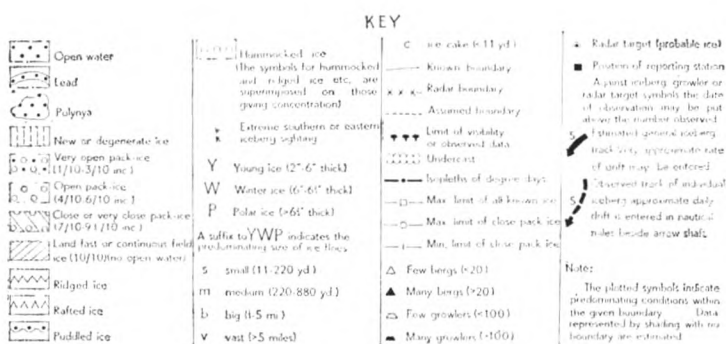 KEY
Open water
Lead
Polynya
New or degenerate ice
Very open pack-ice
(1/10-3/10 inc.)
Open pack-ice
(4/10-6/10 inc.)
Close or very close pack-ice
(7/10-9+/10 inc)
Land fast or continuous field
ice (10/10)(no open water)
Ridged ice
Rafted ice
Puddled ice
Hummocked ice
(The symbols for hummocked
and ridged ice etc. are
superimposed on those
giving concentration)
Extreme southern or eastern
iceberg sighting
Y Young ice (2"-6" thick)
W Winter ice (6"-6½' thick)
P Polar ice (>6½' thick)
A suffix to YWP indicates the
predominating size of ice floes
s small (11-220 yd)
m medium (220-880 yd)
b big (½-5 mi)
v vast (>5 miles)
c ice cake (<11 yd)
Known boundary
Radar boundary
Assumed boundary
Limit of visibility
or observed data
Undercast
Isopleths of degree days
Max. limit of all known ice
Max. limit of close pack ice
Min. limit of close pack ice
Few bergs (<20)
Many bergs (>20)
Few growlers (<100)
Many growlers (>100)
Radar target (probable ice)
Position of reporting station
Against iceberg, growler or
radar target symbols the date
of observation may be put
above the number observed
5 Estimated general iceberg
track. Very approximate rate
of drift may be entered
Observed track of individual
5 iceberg approximate daily
drift is entered in nautical
miles beside arrow shaft
Note:
The plotted symbols indicate
predominating conditions within
the given boundary. Data
represented by shading with no
boundary are estimated